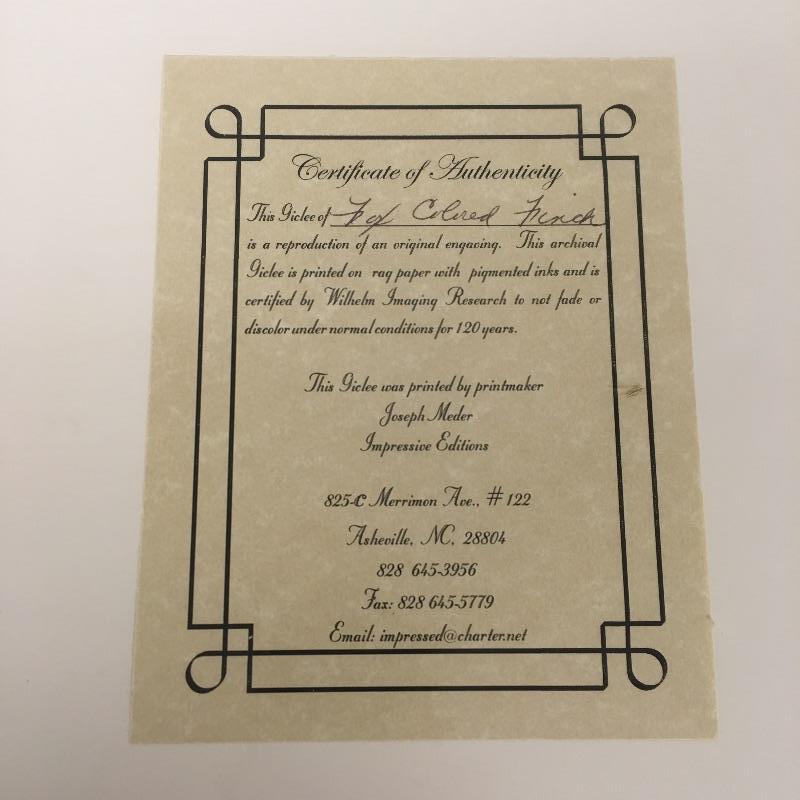 Certificate of Authenticity
This Giclee of Fox Colored Finch
is a reproduction of an original engaving. This archival
Giclee is printed on rag paper with pigmented inks and is
certified by Wilhelm Imaging Research to not fade or
discolor under normal conditions for 120 years.
This Giclee was printed by printmaker
Joseph Meder
Impressive Editions
825-C Merrimon Ave., # 122
Asheville, NC, 28804
828 645-3956
Fax: 828 645-5779
Email: impressed@charter.net